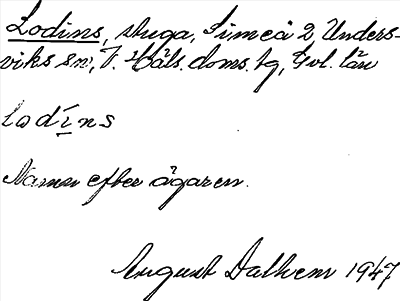 Lodins, stuga, Simeå 2, Unders-
viks sn, V. Häls. doms. hg, Gvl. län
lodíns
Namn efter ägaren.
August Dalhem 1947